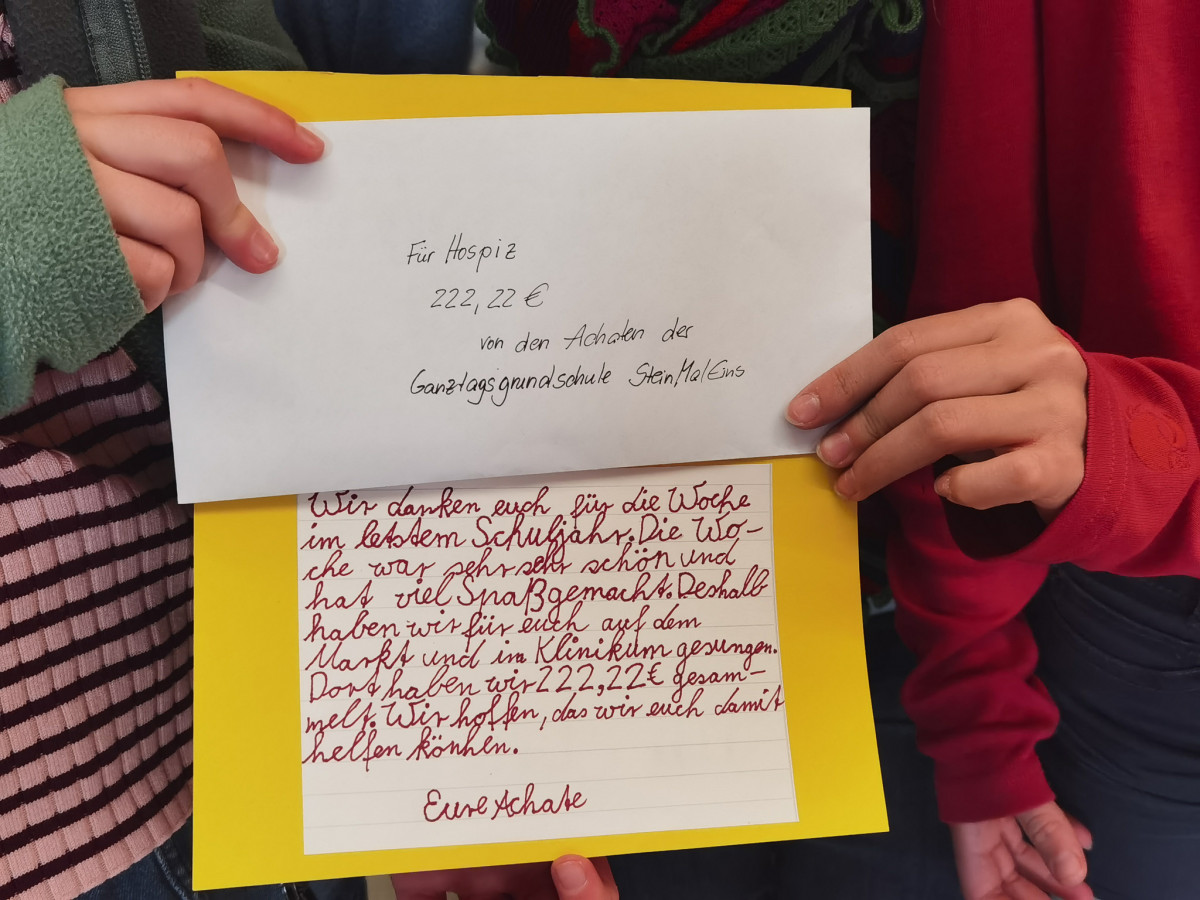 Für Hospiz
222,22 €
von den Achaten der
Ganztagsgrundschule SteinMalEins
Wir danken euch für die Woche
im letstem Schuljahr. Die Wo-
che war sehr sehr schön und
hat viel Spaß gemacht. Deshalb
haben wir für euch auf dem
Markt und im Klinikum gesungen.
Dort haben wir 222,22€ gesam-
melt. Wir hoffen, das wir euch damit
helfen können.
Eure Achate